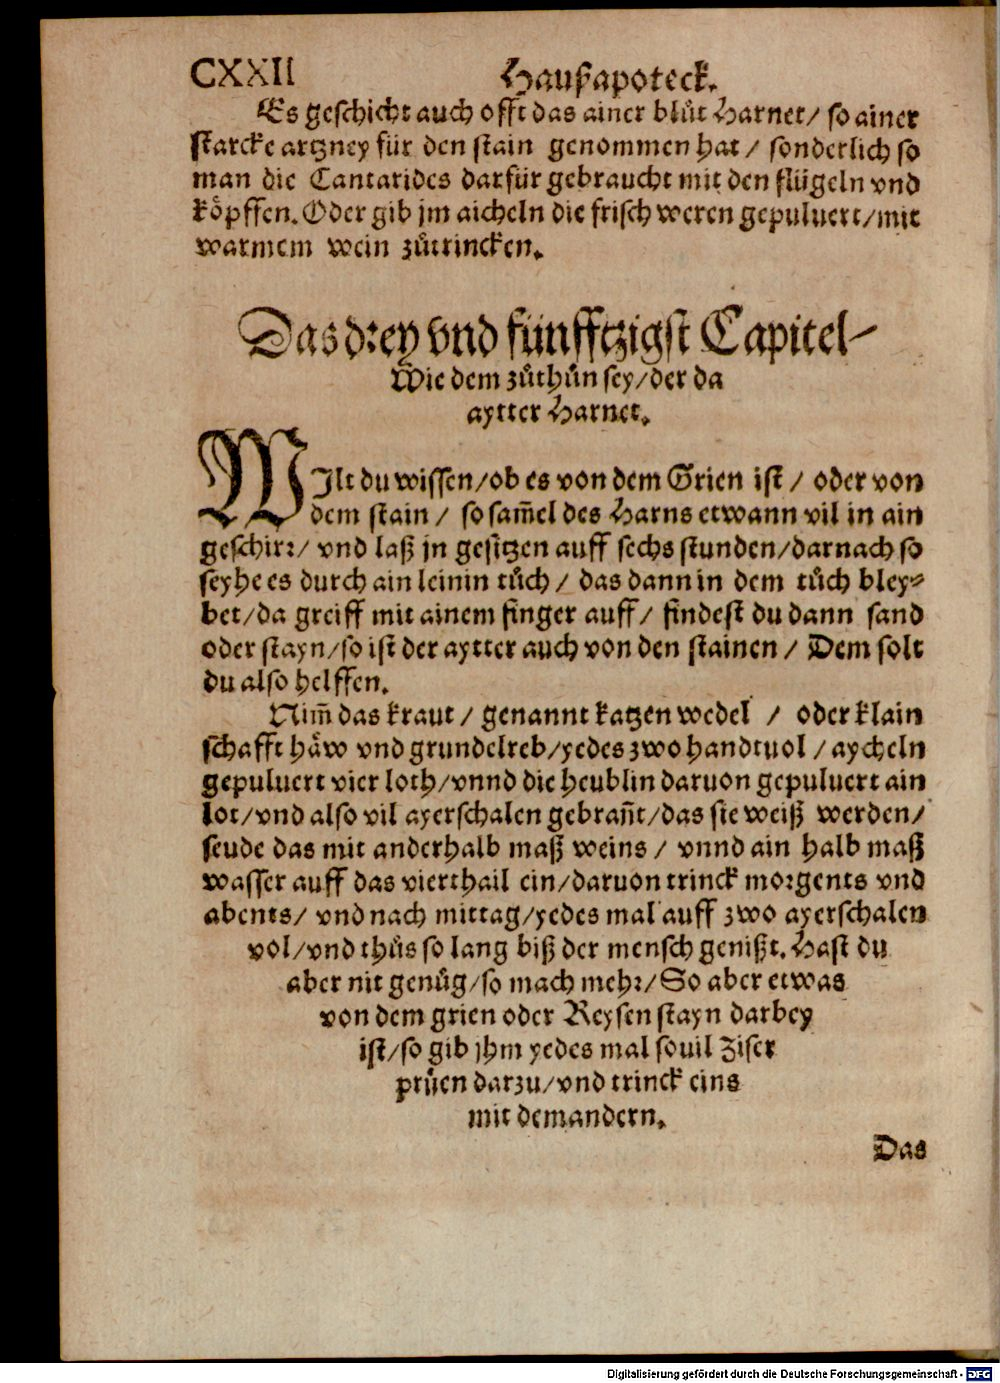 CXXII Haußapoteck.
Es geschicht auch offt das ainer blůt Harnet/ so ainer
starcke artzney für den stain genommen hat / sonderlich so
man die Cantarides darfür gebraucht mit den flügeln vnd
köpffen. Oder gib jm aicheln die frisch weren gepuluert/mit
warmem wein zůtrincken.
Das drey vnd fünfftzigst Capitel-
Wie dem zůthůn sey/der da
aytter Harnet.
WIlt du wissen/ob es von dem Grien ist / oder von
dem stain / so sam̃el des Harns etwann vil in ain
geschirr/ vnd laß jn gesitzen auff sechs stunden/darnach so
seyhe es durch ain leinin tůch / das dann in dem tůch bley-
bet/da greiff mit ainem finger auff/ findest du dann sand
oder stayn/so ist der aytter auch von den stainen / Dem solt
du also helffen.
Nim̃ das kraut / genannt katzen wedel / oder klain
schafft häw vnd grundelreb/yedes zwo handtuol / aycheln
gepuluert vier loth/vnnd die heublin daruon gepuluert ain
lot/vnd also vil ayerschalen gebrañt/das sie weiß werden/
seude das mit anderhalb maß weins / vnnd ain halb maß
wasser auff das vierthail ein/daruon trinck morgents vnd
abents/ vnd nach mittag/yedes mal auff zwo ayerschalen
vol/vnd thůs so lang biß der mensch genißt. Hast du
aber nit genůg/so mach mehr/So aber etwas
von dem grien oder Reysen stayn darbey
ist/so gib jhm yedes mal souil Ziser
průen darzu/vnd trinck eins
mit demandern.
Das
Digitalisierung gefördert durch die Deutsche Forschungsgemeinschaft - DFG